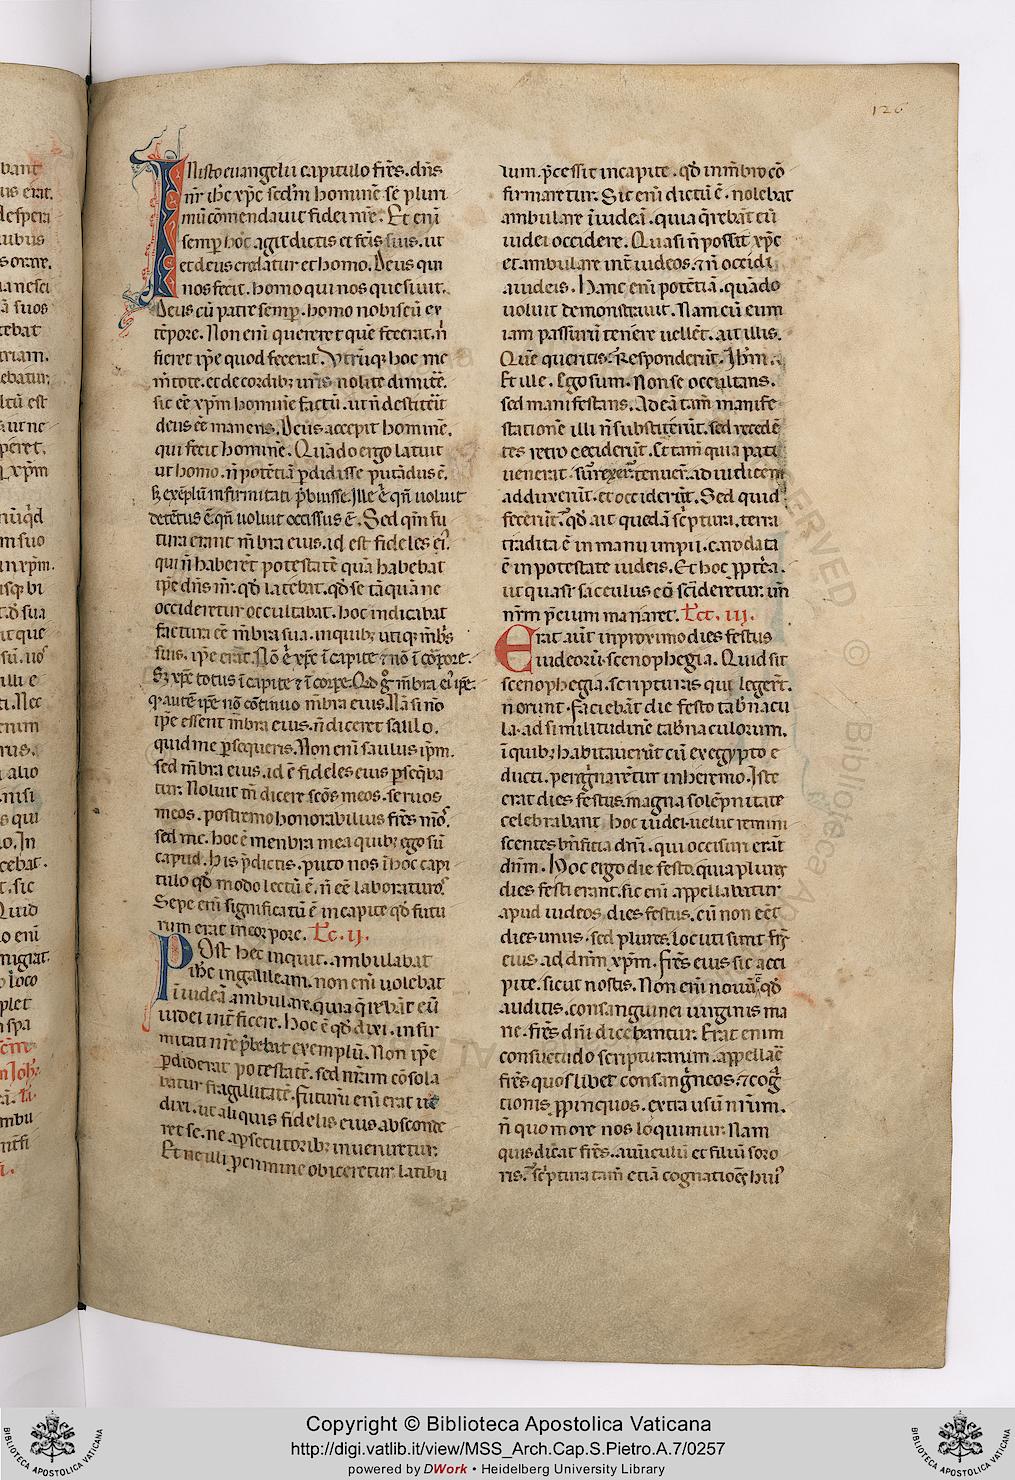 126
IN isto euangelii capitulo fr̄es. dn̄s
nr̄ ih̄c xp̄c scd̄m hominē se pluri
mū cōmendauit fidei nr̄e. Et eni
semp hoc agit dictis et fcīs suis. ut
et deus credatur et homo. Deus qui
nos fecit. homo qui nos quesiuit.
Deus cū patre semp. homo nobiscū ex
tēpore. Non eni quereret quē fecerat. n̄
fieret ip̄e quod fecerat.
m̄tote. et de cordibꝫ ur̄is nolite dimittē.
sic eē xp̄m hominē factū. ut n̄ destiterit
deus eē manens. Deus accepit hominē.
qui fecit hominē. Quādo ergo latuit
ut homo. n̄ potētiā p̄didisse putādus ē.
sꝫ exēplū infirmitati p̄buisse. Ille ē qn̄ uoluit
detētus ē. qn̄ uoluit occissus ē. Sed qm̄ fu
tura erant mbra eius. id est fideles ei.
qui n̄ haberēt potestatē quā habebat
ip̄e dn̄s nr̄. qd̄ latebat. qd̄ se tāquā ne
occideretur occultabat. hoc indicabat
factura eē m̄bra sua. in quibꝫ utiqꝫ mbris
suis. ip̄e erat. Nō ē xp̄c ī capite ⁊ nō ī corpore.
Sꝫ xp̄c totus ī capite ⁊ ī corpe. Qd̄ g̊ m̄bra ei ip̄e.
qd̄ autē ip̄e nō cōtinuo m̄bra eius. Nā si nō
ip̄e essent m̄bra eius. n̄ diceret saulo.
quid me psequeris. Non eni saulus ip̄m.
sed m̄bra eius. id ē fideles eius pseqba
tur. Noluit tn̄ dicere scōs meos. seruos
meos. postremo honorabilius fr̄es meos.
sed me. hoc ē menbra mea quibꝫ ego sū
capud. His p̄dictis. puto nos ī hoc capi
tulo qd̄ modo lectū ē. n̄ eē laboraturos.
Sepe eni significatū ē in capite qd̄ futu
rum erat in corpore. Lc̄. ii.
Post hec inquit. ambulabat
ih̄c in galileam. non eni uolebat
ī iudeā ambulare. quia q̄rebāt eū
iudei int̄ficere. hoc ē qd̄ dixi. in fir
mitati nr̄e p̄bebat exemplū. Non ip̄e
pdiderat potestatē. sed nr̄am cōsola
batur fragilitatē. futurū eni erat ut
dixi. ut aliquis fidelis eius absconde
ret se. ne a psecutoribꝫ inueniretur.
Et ne illi p crimine obiceretur latibu
lum. p̄cessit in capite. qd̄ in mbro cō
firmaretur. Sic eni dictū ē. nolebat
ambulare ī iudeā. quia q̄rebāt eū
iudei occidere. Quasi n̄ possit xp̄c
et ambulare int̄ iudeos. ⁊ n̄ occidi
a iudeis. Hanc eni potētiā. quādo
uoluit demonstrauit. Nam cū eum
iam passurū tenere uellēt. ait illis.
Quē queritis. Responderūt. Ih̄m.
Et ille. Ego sum. Non se occultans.
sed manifestans. Ad eā tam̄ manife
stationē illi n̄ substiterūt. sed recedē
tes retro ceciderūt. Et tam̄ quia pati
uenerat. surrexerūt. tenuerūt. ad iudicem
adduxerūt. et occiderūt. Sed quid
fecerūt. qd̄ ait quedā scriptura. terra
tradita ē in manu impii. caro data
ē in potestate iudeis. Et hoc pptēa.
ut quasi sacculus eo scinderetur. un̄
nr̄m p̄cium manaret. Lct̄. iii.
Erat aut̄ in proximo dies festus
iudeorū. scenophegia. Quid sit
scenophegia. scripturas qui legerūt.
norunt. faciebāt die festo tabnacu
la. ad similitudinē tabnaculorum.
ī quibꝫ habitauerūt cū ex egypto e
ducti. pergnarētur in heremo. Iste
erat dies festus. magna solēpnitate
celebrabant hoc iudei. uelut remini
scentes bn̄ficia dnī. qui occisuri erāt
dnm. Hoc ergo die festo. quia plures
dies festi erant. sic eni appellabatur
apud iudeos dies festus. cū non eēt
dies unus. sed plures. locuti sunt fr̄s
eius ad dnm xp̄m. fr̄es eius sic acci
pite. sicut nostis. Non eni nouū ē. qd̄
auditis. consanguinei uirginis ma
rie. fr̄es dnī dicebantur. Erat enim
consuetudo scripturarum. appellaē
fr̄es quoslibet consangneos. ⁊ cog
tionis ppinquos. extra usū nr̄um.
n̄ quo more nos loquimur. Nam
quis dicat fr̄es. auūculū et filiū soro
ris. Scriptura tam̄ etiā cognatiōes hui
Copyright © Biblioteca Apostolica Vaticana
http://digi.vatlib.it/view/MSS_Arch.Cap.S.Pietro.A.7/0257
powered by DWork • Heidelberg University Library
BIBLIOTECA APOSTOLICA VATICANA
BIBLIOTECA APOSTOLICA VATICANA